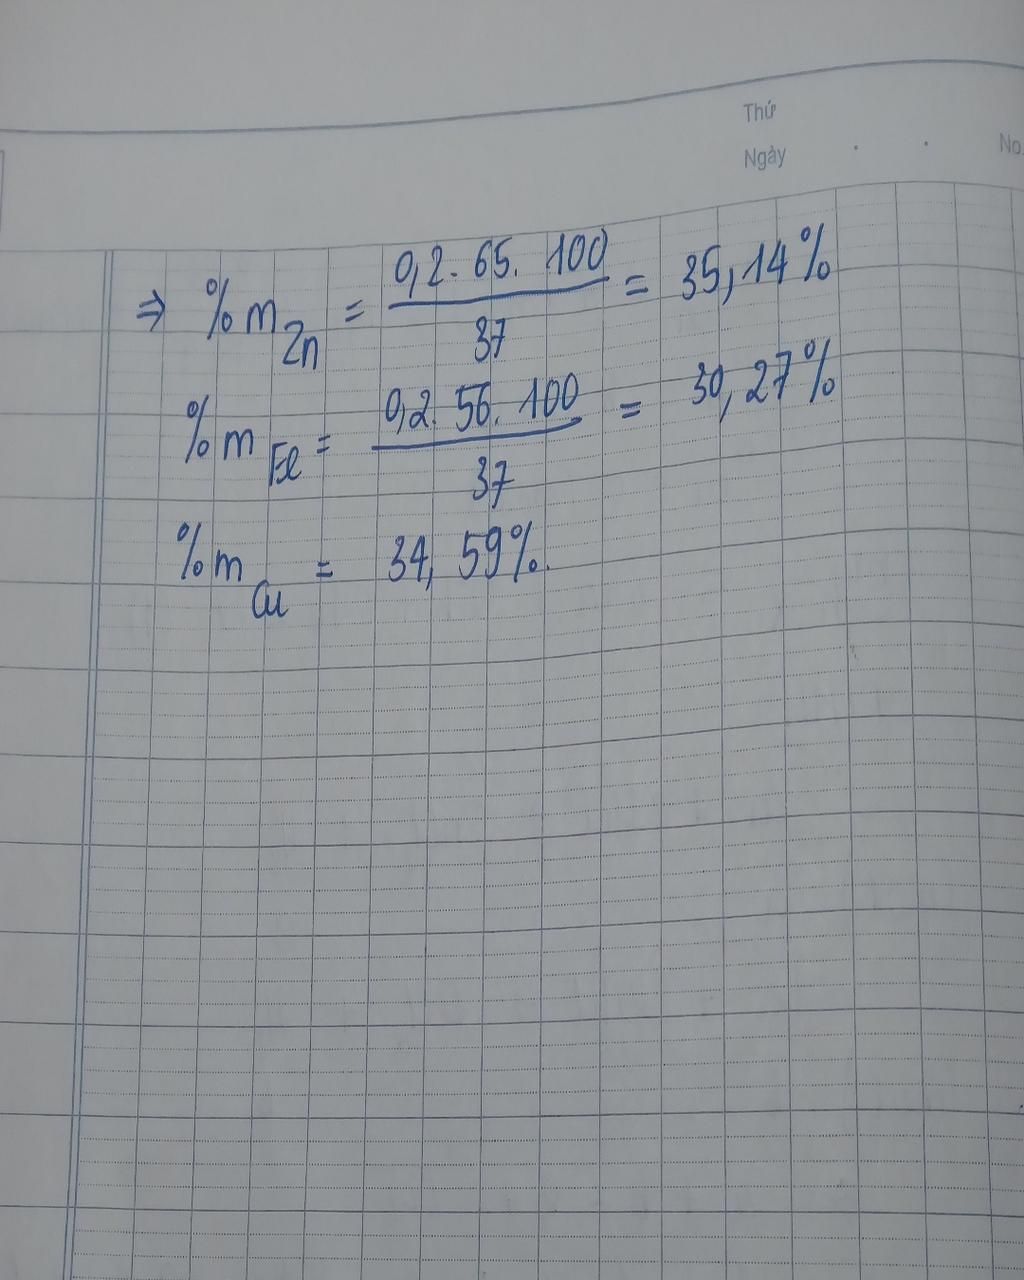 Thứ
Ngày . . No.
⇒ %m Zn = 0,2. 65. 100 / 37 = 35,14%
%m Fe = 0,2. 56. 100 / 37 = 30,27%
%m Cu = 34,59%.